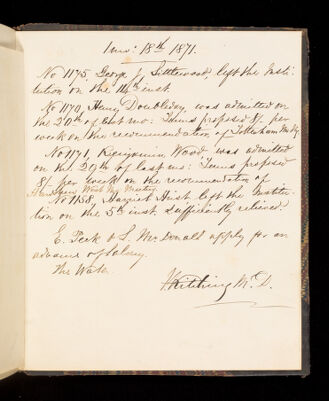 1mo: 18th 1871.
No 1175, George J left the Insti-
tution on the 14th inst.
No 1170, Henry Doubleday, was admitted on
the 20th of last mo: Terms proposed 8/. per
week on the recommendation of Tottenham Mo Mg
No 1171, Benjamin Wood was admitted
on the 29th of last mo: Terms proposed
8/ per week on the recommendation of
Mg Meeting.
No 1158, Harriet Hist left the Institu-
tion on the 5th inst. sufficiently relieved.
E. Peck & S. McDonald apply for an
advance of Salary.
The Water
Kitching M.D.